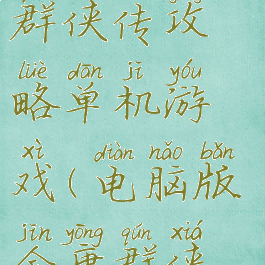 群侠传攻
lüè dān jī yóu
略单机游
xì diàn nǎo bǎn
戏(电脑版
jīn yōng qún xiá
金庸群侠